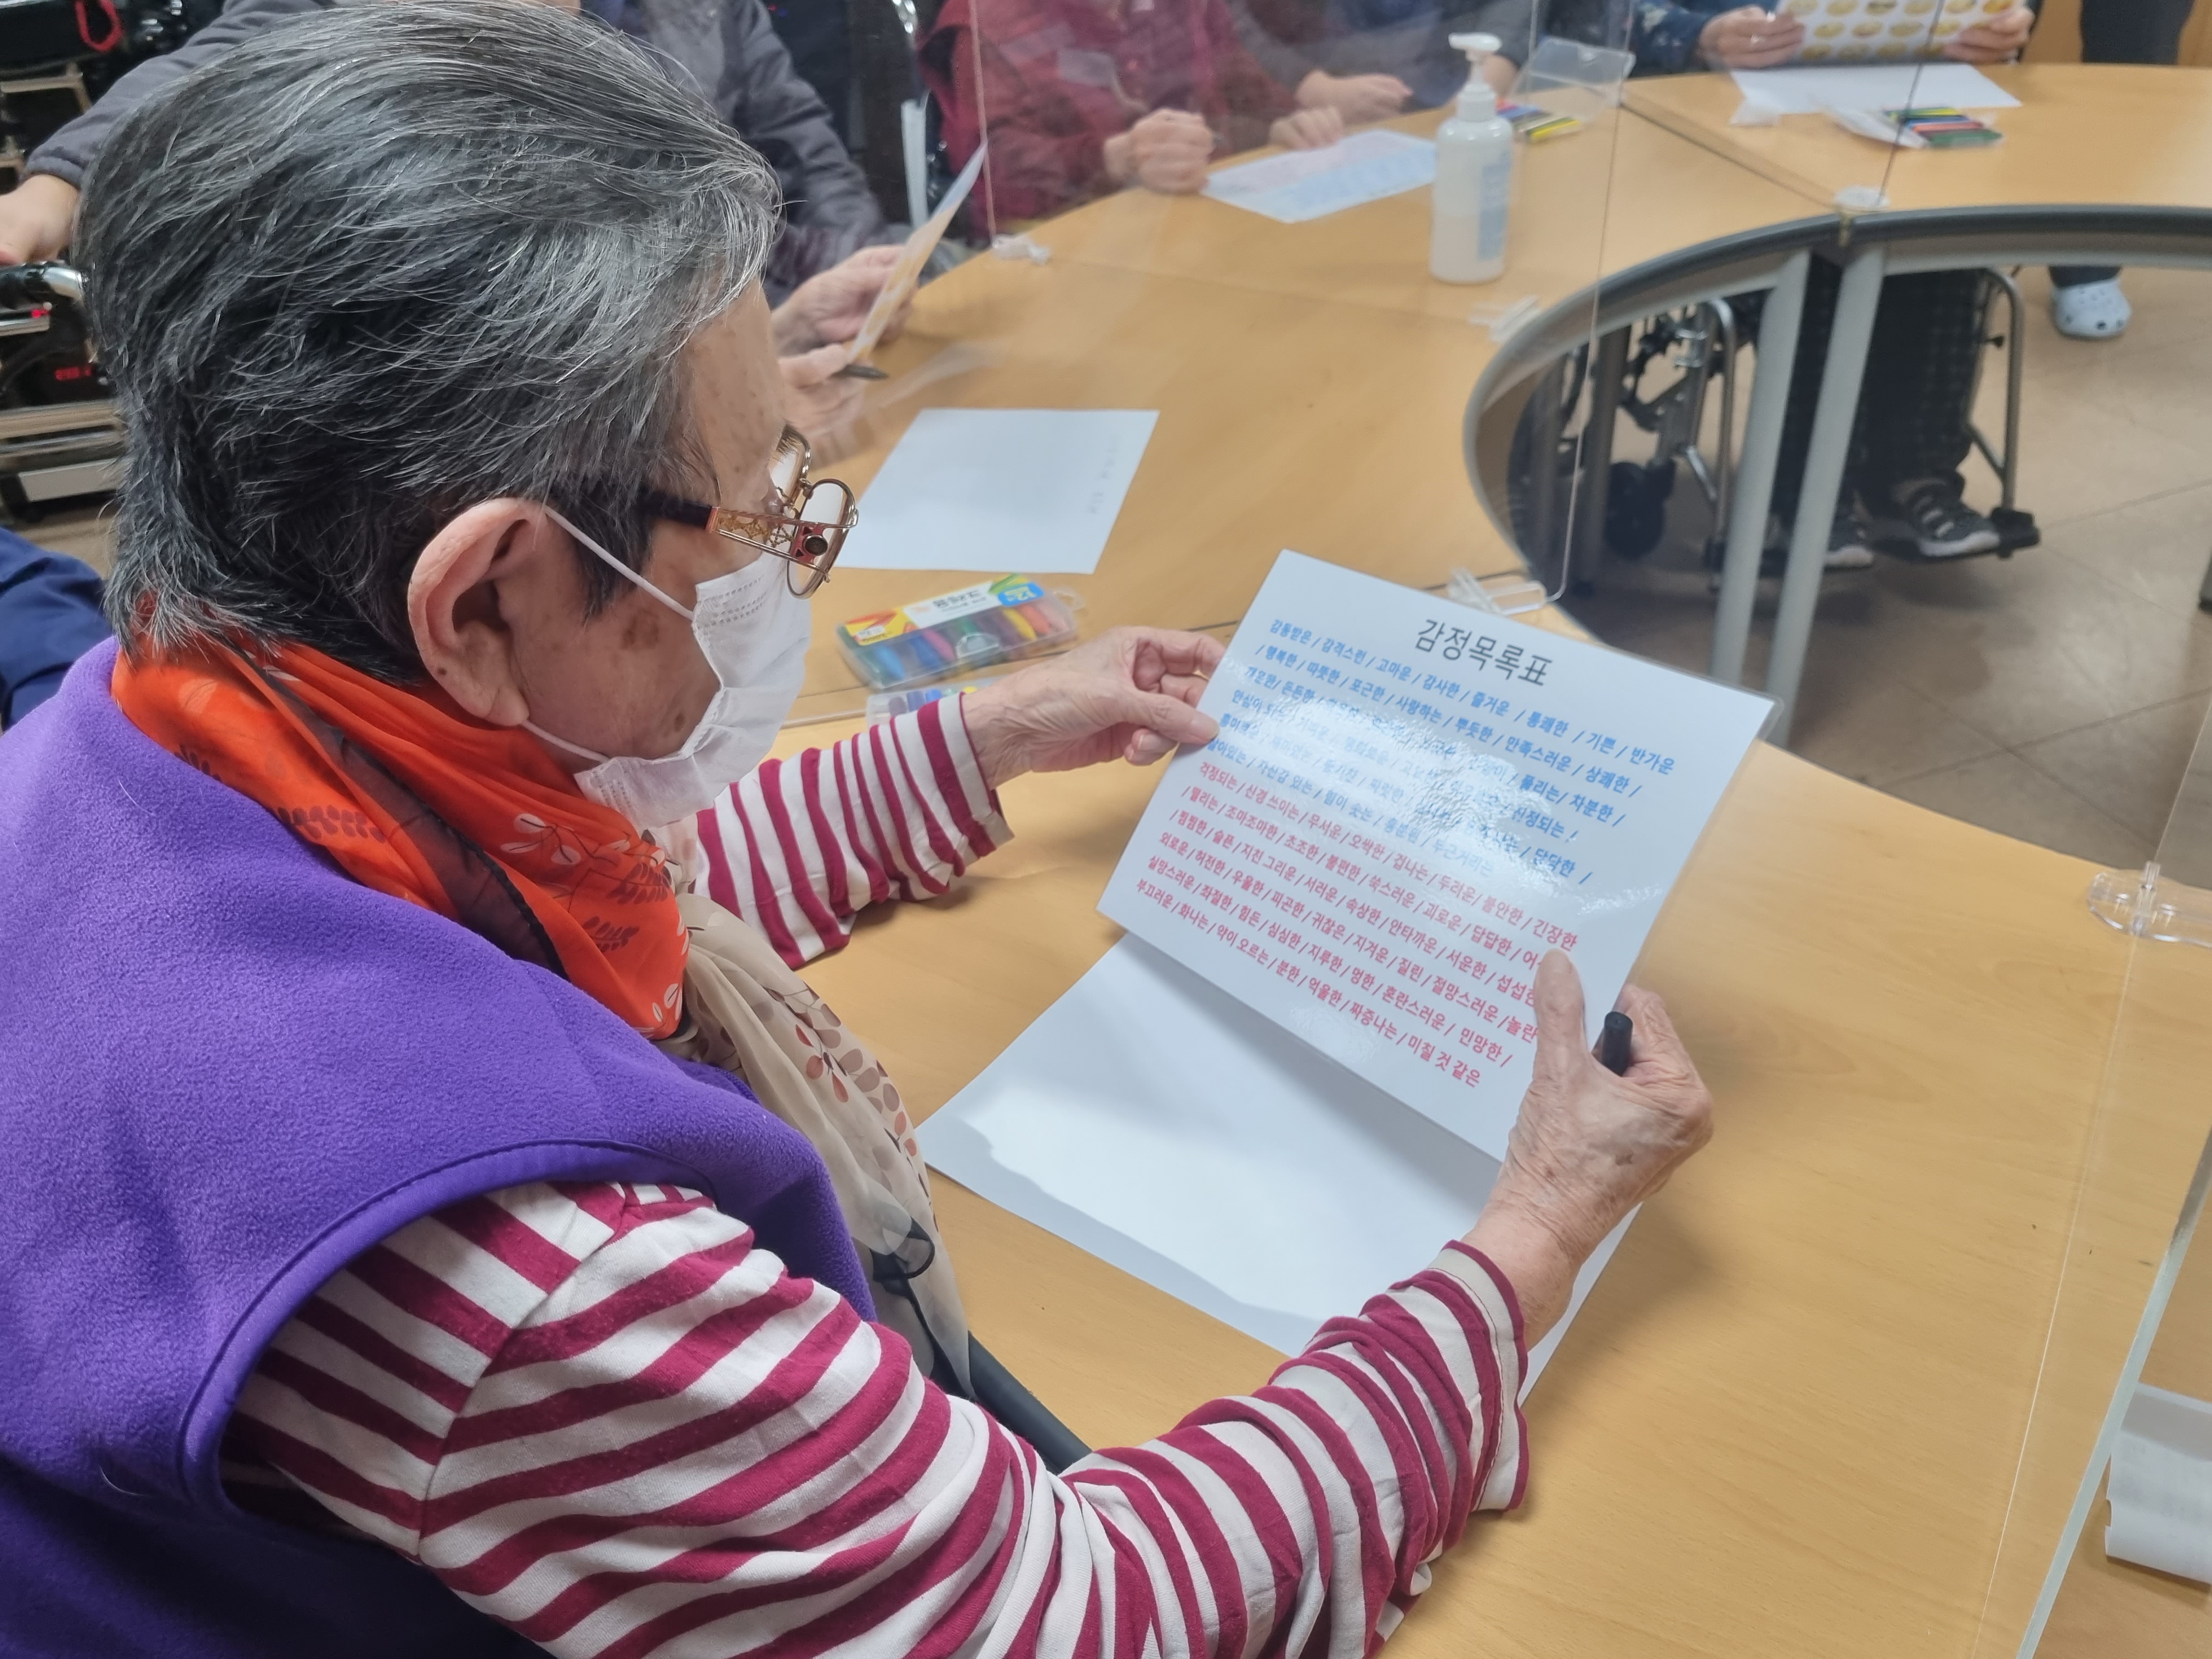 감정목록표
감동받은 / 감격스런 / 고마운 / 감사한 / 즐거운 / 통쾌한 / 기쁜 / 반가운
/ 행복한 / 따뜻한 / 포근한 / 사랑하는 / 뿌듯한 / 만족스러운 / 상쾌한 /
개운한 / 든든한 / 풀리는 / 차분한 /
안심이 되는 / 진정되는 /
흥미 평화로운 / 담담한 /
살아있는 / 자신감 있는 / 힘이 솟는 / 흥분된 / 두근거리는 /
걱정되는 / 신경 쓰이는 / 무서운 / 오싹한 / 겁나는 / 두려운 / 불안한 / 긴장한
/ 떨리는 / 조마조마한 / 초조한 / 불편한 / 쑥스러운 / 괴로운 / 답답한 / 어
/ 찜찜한 / 슬픈 / 지친 그리운 / 서러운 / 속상한 / 안타까운 / 서운한 / 섭섭한
외로운 / 허전한 / 우울한 / 피곤한 / 귀찮은 / 지겨운 / 질린 / 절망스러운 / 놀란
실망스러운 / 좌절한 / 힘든 / 심심한 / 지루한 / 멍한 / 혼란스러운 / 민망한 /
부끄러운 / 화나는 / 약이 오르는 / 분한 / 억울한 / 짜증나는 / 미칠 것 같은